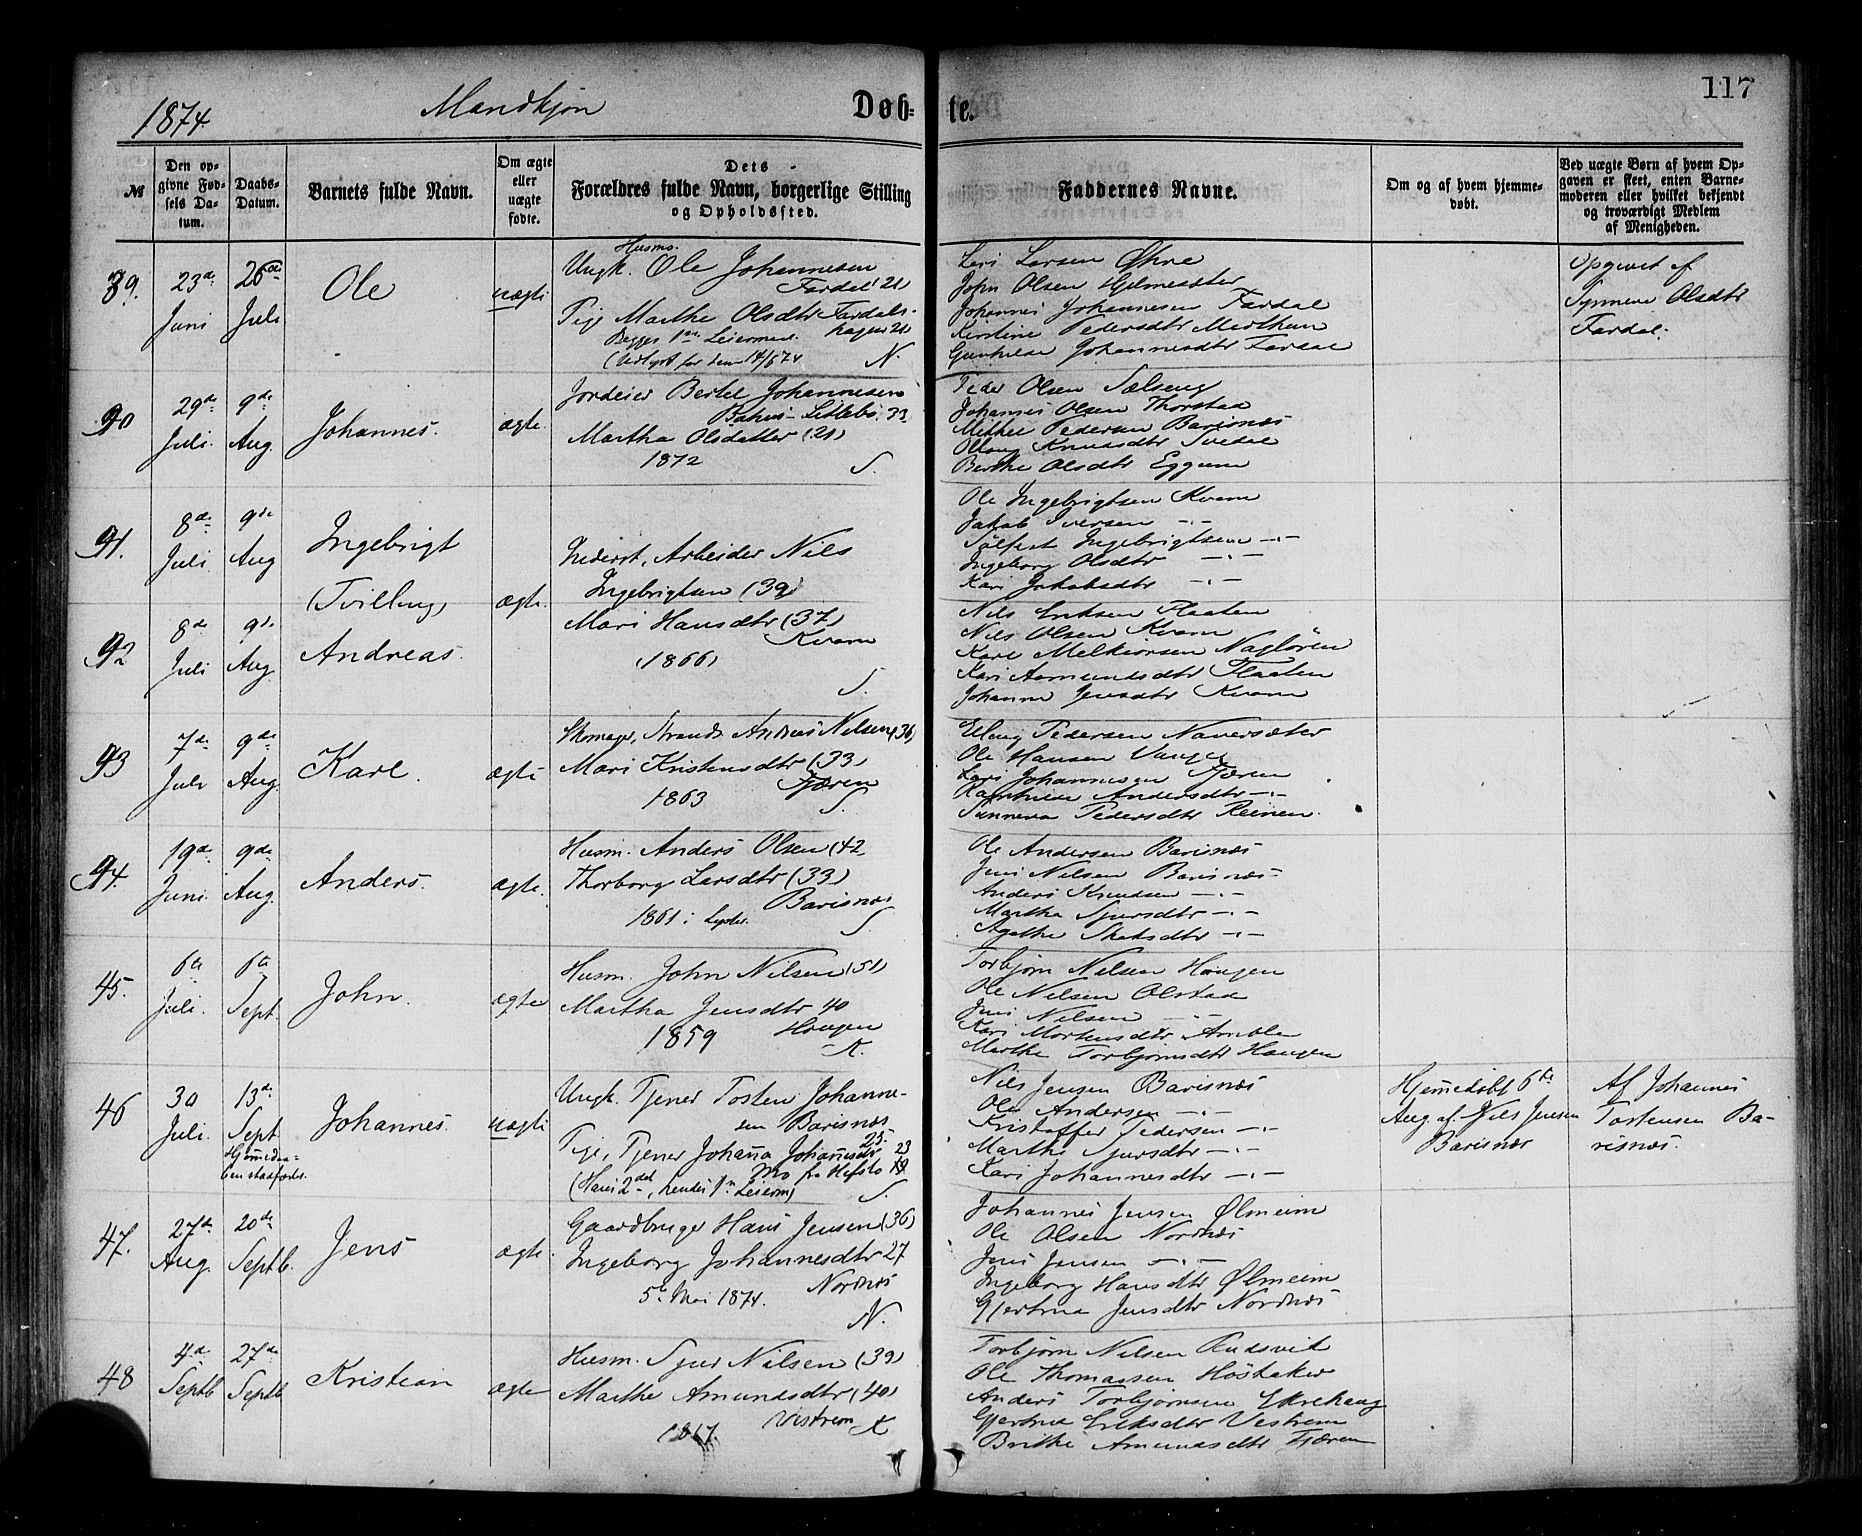 117
1874. Mandkjøn Døb- te.
№
Den opgivne Fødsels Datum.
Daabs-Datum.
Barnets fulde Navn.
Om ægte eller uægte fødte.
Dets Forældres fulde Navn, borgerlige Stilling og Opholdssted.
Faddernes Navne.
Om og af hvem hjemmedøbt.
Ved uægte Børn af hvem Opgaven er skeet, enten Barnemoderen eller hvilket bekjendt og troværdigt Medlem af Menigheden.
39. 23de Juni 26de Juli Ole uægte
Husms.
Ungk. Ole Johannesen
Fardal 21
Pige Marthe Olsdtr Fardals-
hagen 21
Begges 1ste Leiermaal.
N.
Lars Larsen Øhre
John Olsen Hjelmesæter
Johannes Johannesen Fardal
Kirstine Pedersdtr Medhum
Gunhilde Johannesdtr Fardal
Opgivet af
Synneve Olsdtr
Fardal.
90 29de Juli. 9de Aug. Johannes. ægte.
Jordeier Bertel Johannesen
33
Martha Olsdatter (21)
1872
S.
Peder Olsen Sælseng
Johannes Olsen Thorstad
Mithel Pedersen Barisnæs
Ollaug Knudsdtr Svedal
Berthe Olsdtr Eggum
91. 8de Juli 9de Aug Ingebrigt
(Tvilling) ægte.
Inderst, Arbeider Nils
Ingebrigtsen (39)
Mari Hansdtr (37)
Kvam
(1866)
S.
Ole Ingebrigtsen Kvam
Jakob Iversen -"-
Sølfest Ingebrigtsen -"-
Ingeborg Olsdtr -"-
Kari Jakobsdtr -"-
92 8de Juli 9de Aug. Andreas.
Nils Eriksen Flaaten
Nils Olsen Kvam
Karl Melkiorsen Nagløren
Kari Aamundsdtr Flaaten
Johanne Jensdtr Kvam
93 7de Juli 9de Aug Karl. ægte
Skomager, Strands. Andreas Nilsen (36)
Mari Kristensdtr (33)
Fjæren
1863
S.
Erling Pedersen Navarsæter
Ole Hansen Vange
Lars Johannesen Fjæren
Ragnhilda Andersdtr -"-
Sunneva Pedersdtr Reinen.
94. 19de Juni. 9de Aug. Anders. ægte.
Husm. Anders Olsen (42
Thorborg Larsdtr (33)
Barisnæs
1861 i Lyster.
S.
Ole Andersen Barisnæs
Jens Nilsen Barisnæs.
Anders Knudsen -"-
Martha Sjursdtr -"-
Agathe -"-
45. 6te Juli. 6te Sept. John. ægte
Husm. John Nilsen (51)
Martha Jensdtr 40
Haugen
1859
K.
Torbjørn Nilsen Haugen
Ole Nilsen Olstad
Jens Nilsen -"-
Kari Mortensdtr Amble
Marthe Torbjørnsdtr Haugen
46 30 Juli. 13de Sept Johannes. uægte
Hjemedaa-
ben stadfæstet.
Ungk. Tjener Tosten Johanne-
sen Barisnæs
25.
Pige, Tjener Johana Johanesdtr 23
Mo fra Hafslo
(Hans 2det, hendes 1ste Leierm)
S.
Nils Jensen Barisnæs
Ole Andersen -"-
Kristoffer Pedersen -"-
Marthe Sjursdtr -"-
Kari Johannesdtr -"-
Hjemedøbt 6te
Aug. af Nils Jensen
Barisnæs
Af Johannes
Tostensen Ba-
risnæs.
47. 27de Aug. 20de Septb. Jens ægte.
Gaardbruger Hans Jensen (36)
Ingeborg Johannesdtr 27
Nordnæs
5te Mai 1874.
N.
Johannes Jensen Ølmeim
Ole Olsen Nordnæs
Jens Jensen -"-
Ingeborg Hansdtr Ølmeim
Gjertrud Jensdtr Nordnæs
48 4de Septb 27de Septb Kristian ægte
Husm. Sjur Nilsen (39)
Marthe Amundsdtr (40)
Vestrem
1867.
K
Torbjørn Nilsen Rudsvik
Ole Thomassen Høstaker
Anders Torbjørnsen Ekrehaug
Gjertrud Eriksdtr Vestrem
Brithe Amundsdtr Fjæren